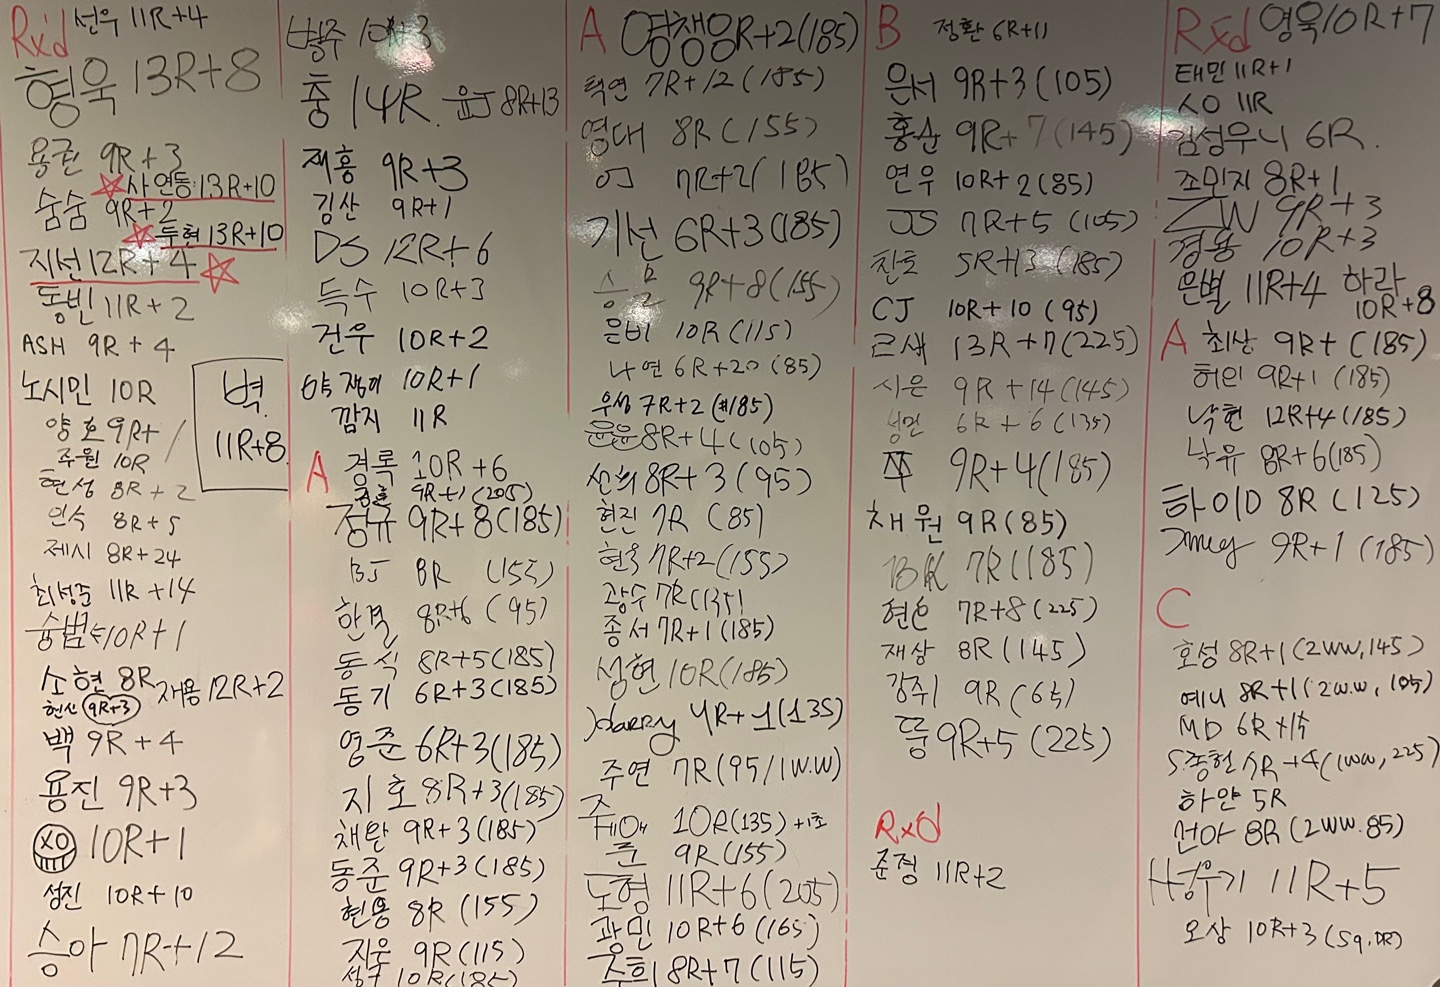 Rx'd 선우 11R+4
형욱 13R+8
용권 9R+3
사연동 13R+10
숨숨 9R+2
두현 13R+10
지선 12R+4
동빈 11R+2
ASH 9R+4
노시민 10R
벽. 11R+8
양호 9R+1
주원 10R
현성 8R+2
인숙 8R+5
제시 8R+24
최성준 11R+14
숭범 10R+1
소현 8R 재용 12R+2
현신 9R+3
백 9R+4
용진 9R+3
XO 10R+1
성진 10R+10
승아 7R+12
별주 10R+3
충 14R. 윤J 8R+13
재홍 9R+3
김산 9R+1
DS 12R+6
득수 10R+3
건우 10R+2
10R+1
깜지 11R
A 경록 10R+6
9R+1(205)
정규 9R+8(185)
BJ 8R (155)
한결 8R+6 (95)
동식 8R+5(185)
동기 6R+3(185)
영준 6R+3(185)
지호 8R+3(185)
채완 9R+3(185)
동준 9R+3(185)
현용 8R (155)
지웅 9R(115)
10R(185)
A R+2(185)
탁연 7R+12(185)
영대 8R(155)
OJ 7R+2(185)
기선 6R+3(185)
9R+8(155)
은비 10R(115)
나연 6R+20(85)
우성 7R+2(#185)
윤윤 8R+4(105)
선희 8R+3(95)
현진 7R (85)
현욱 7R+2(155)
광수 7R(135)
종서 7R+1(185)
성현 10R(185)
Harry 4R+1(135)
주연 7R(95/1W.W)
10R(135)+1초
준 9R(155)
도형 11R+6(205)
광민 10R+6(165)
주희 8R+7(115)
B 정환 6R+11
은서 9R+3(105)
홍순 9R+7(145)
연우 10R+2(85)
JS 7R+5(105)
찬호 5R+13(185)
CJ 10R+10(95)
르새 13R+7(225)
시은 9R+14(145)
성민 6R+6(135)
쭈 9R+4(185)
채원 9R(85)
BK 7R(185)
7R+8(225)
재상 8R(145)
강주1 9R(65)
뚱 9R+5(225)
Rxd
준정 11R+2
Rxd 영욱 10R+7
태민 11R+1
SO 11R
김성우니 6R.
조민지 8R+1
ZW 9R+3
경용 10R+3
은별 11R+4 하라 10R+8
A 최상 9R+(185)
허린 9R+1(185)
낙현 12R+4(185)
낙유 8R+6(185)
하이D 8R(125)
9R+1(185)
C
호성 8R+1(2WW,145)
예니 8R+1(2W.W,105)
MD 6R+15
S.종현 7R+4(1WW,225)
하얀 5R
선아 8R(2WW.85)
11R+5
오상 10R+3(Sq,DR)